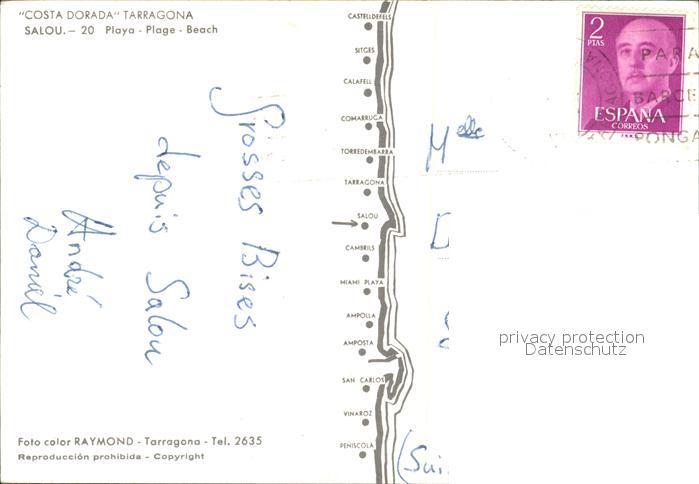 "COSTA DORADA" TARRAGONA
SALOU. — 20 Playa - Plage - Beach
Grosses Bises
depuis Salou
André
Daniel
Foto color RAYMOND - Tarragona - Tel. 2635
Reproducción prohibida - Copyright
CASTELLDEFELS
SITGES
CALAFELL
COMARRUGA
TORREDEMBARRA
TARRAGONA
SALOU
CAMBRILS
MIAMI PLAYA
AMPOLLA
AMPOSTA
SAN CARLOS
VINAROZ
PEÑISCOLA
2
PTAS
ESPAÑA
CORREOS
PARA
BARCE
PONGA
Melle
(Sui
privacy protection
Datenschutz